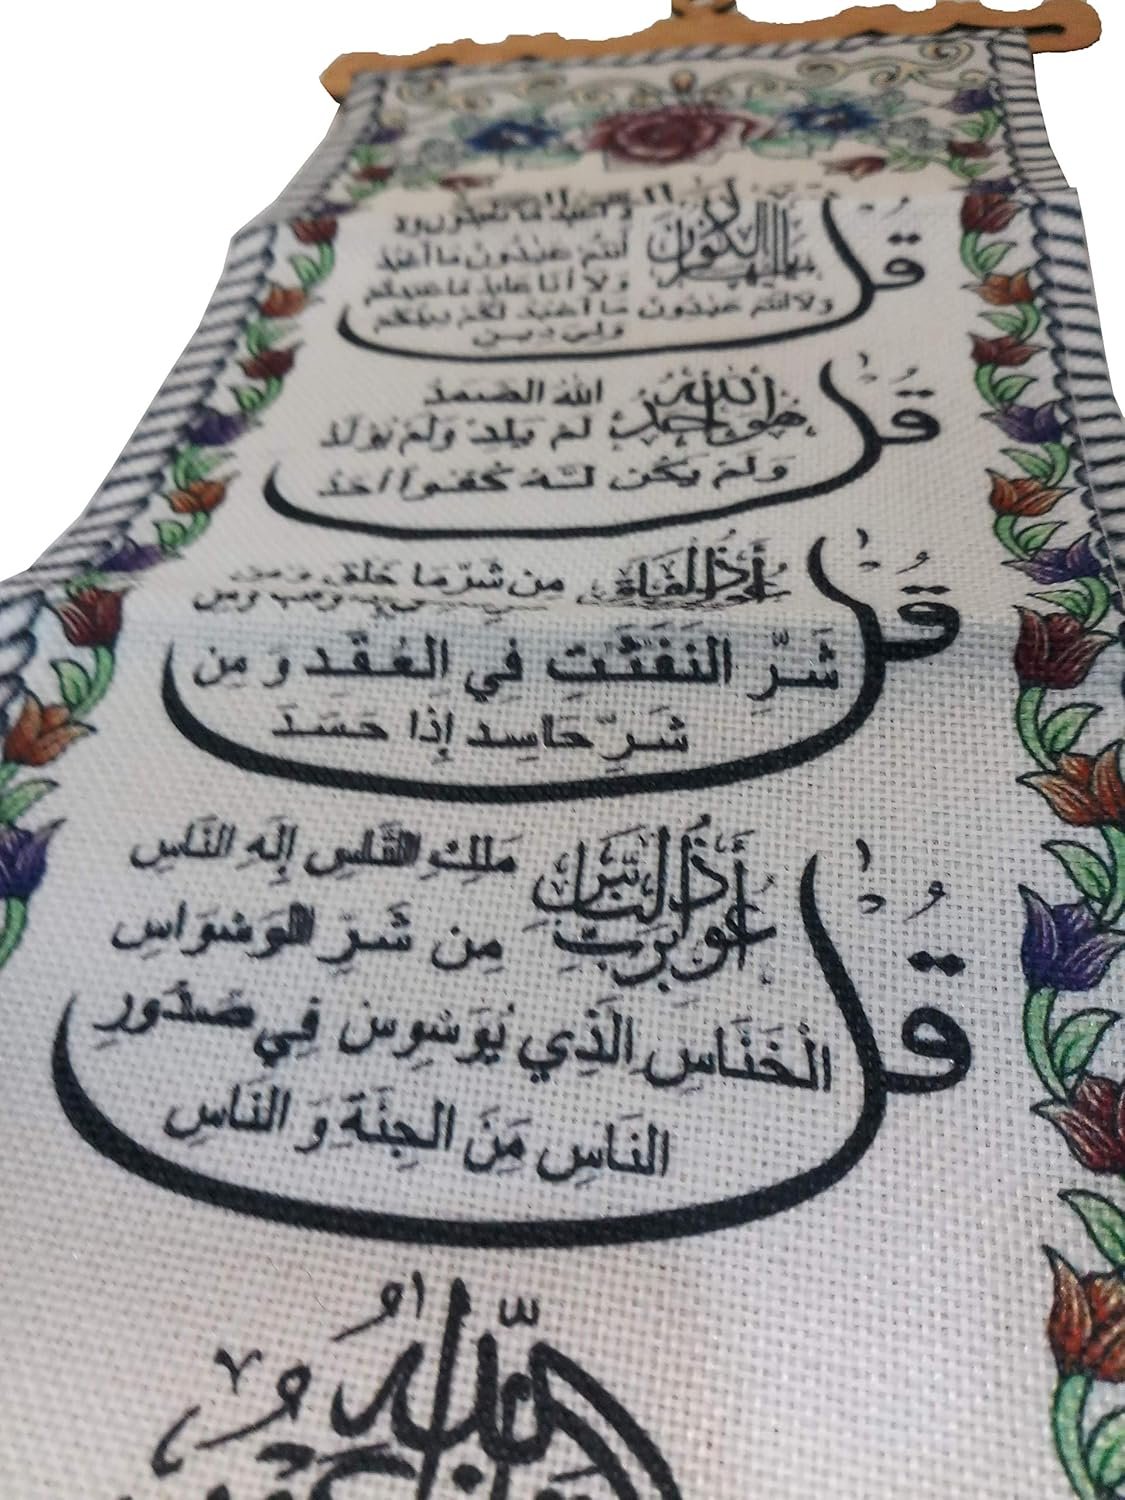 قُلْ
يَا أَيُّهَا الْكَافِرُونَ
أنتم عبدون ما أعبد
ولا أنا عابد ما عبدتم
ولا أنتم عبدون ما أعبد لكم دينكم
ولي دين
قُلْ هُوَ اللَّهُ أَحَدٌ اللهُ الصَمَد
لَمْ يَلِدْ وَلَمْ يُولَدْ
وَلَمْ يَكُن لَّهُ كُفُواً أَحَدٌ
قُلْ أَعُوذُ بِرَبِّ الْفَلَقِ مِن شَرِّ مَا خَلَقَ وَمِن
شَرِّ النَفَثَتِ فِي العُقَدِ وَ مِن
شَرِّ حَاسِدٍ إِذَا حَسَدَ
قُلْ أَعُوذُ بِرَبِّ النَّاسِ مَلِكِ النَّاسِ إِلَهِ النَّاسِ
مِن شَرِّ الوَسْوَاسِ
الْخَنَّاسِ الَّذِي يُوَسْوِسُ فِي صُدُورِ
النَاسِ مِنَ الجِنَةِ وَ النَاسِ